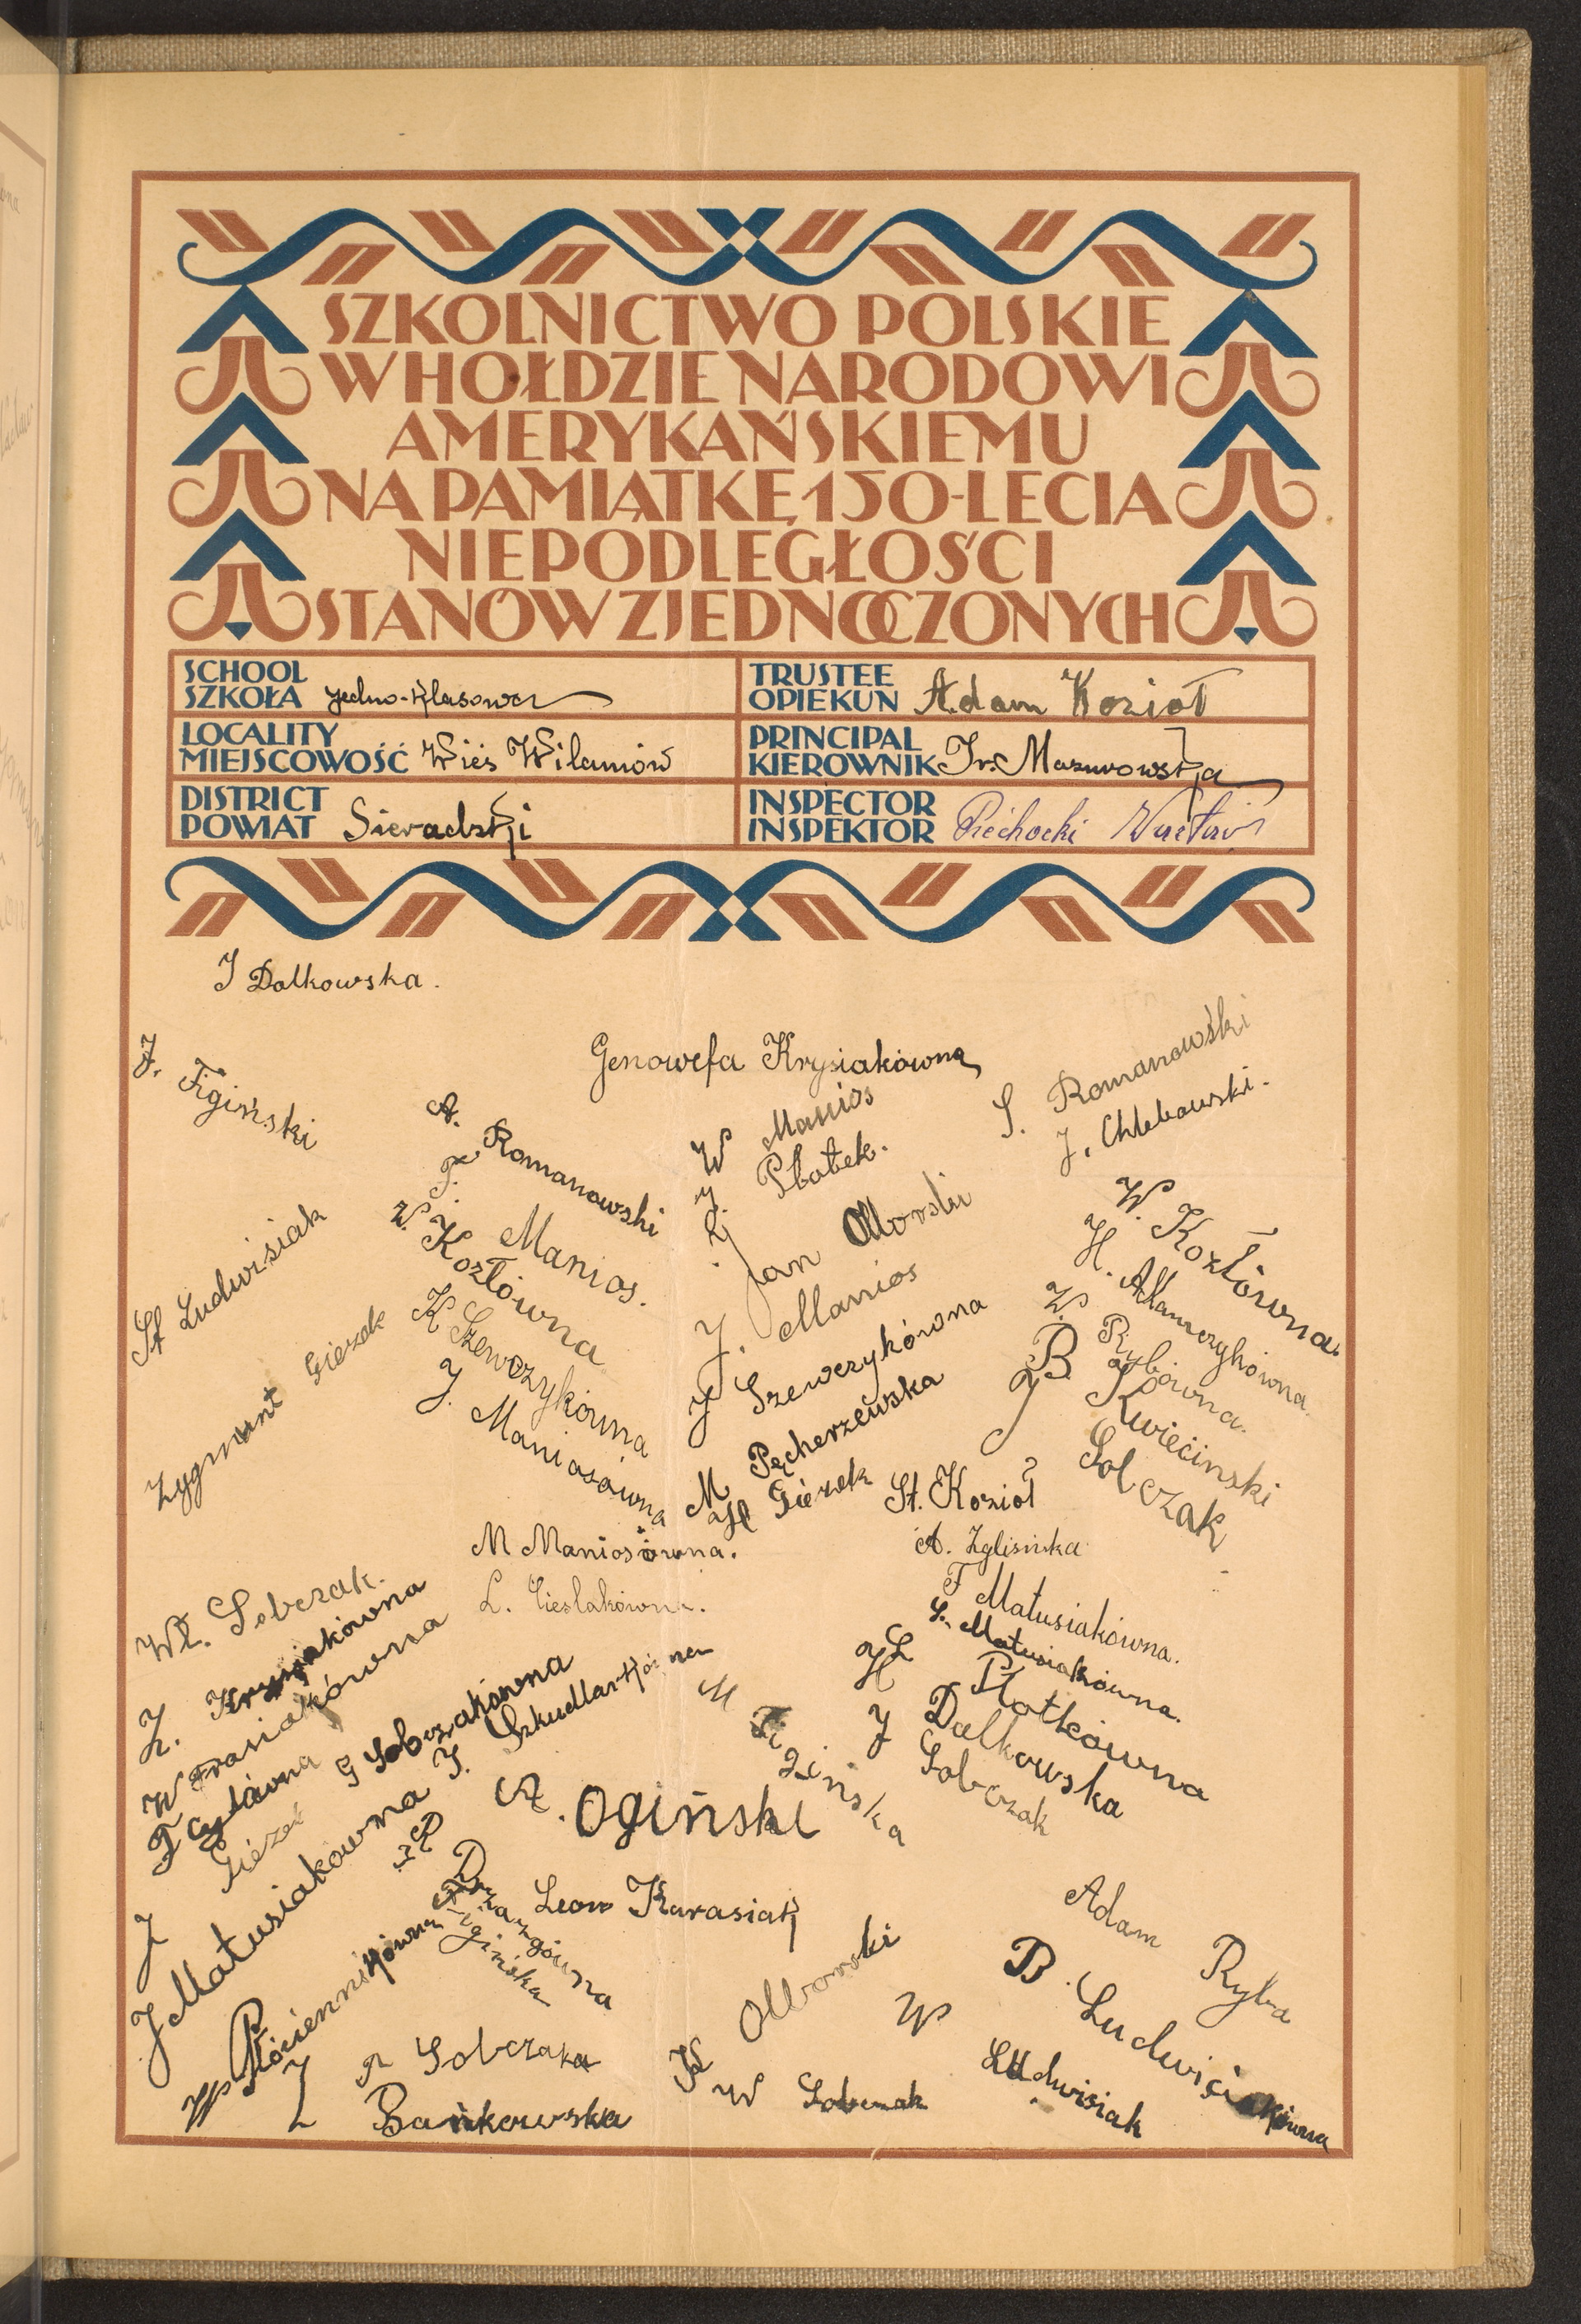 SZKOLNICTWO POLSKIE
W HOŁDZIE NARODOWI
AMERYKAŃSKIEMU
NA PAMIĄTKĘ 150-LECIA
NIEPODLEGŁOŚCI
STANÓW ZJEDNOCZONYCH
SCHOOL
SZKOŁA Jedno-Klasowa
TRUSTEE
OPIEKUN Adam Kozioł
LOCALITY
MIEJSCOWOŚĆ Wieś Wilamów
PRINCIPAL
KIEROWNIK Ir. Mazurowska
DISTRICT
POWIAT Sieradzki
INSPECTOR
INSPEKTOR Piechocki Wacław
J Dalkowska.
J. Figiński
Genowefa Krysiakówna
S. Romanowski
J. Chlebowski.
A. Romanowski
W Manios
J. Płotek.
F. Manios.
W. Kozłówna
Jan Olborski
W. Kozłówna.
H. Adamczykówna.
St Ludwisiak
K Szewczykówna
J. Manios
W. Rybówna.
Zygmunt Giezek
J. Maniosówna
J Szewczykówna
B. Kwieciński
J Sobczak
M Pęcherzewska
H Giezek
St. Kozioł
M Maniosówna.
A. Zglińska
L. Cieslakówna.
F Matusiakówna.
Wł. Sobczak.
S. Matusiakówna.
Z. Krysiakówna
H Płotkówna
W Frasiakówna
J Dalkowska
G Sobczakówna
Z Sobczak
J. Szkudlarkówna
M Figińska
J Giezek
A. Ogiński
J Matusiakówna
Leon Karasiak
Adam Ryba
W Płóciennikówna
Figińska
K Olborski
B. Ludwisiakówna
A Sobczaka
W Ludwisiak
W Sobczak
Z Bańkowska